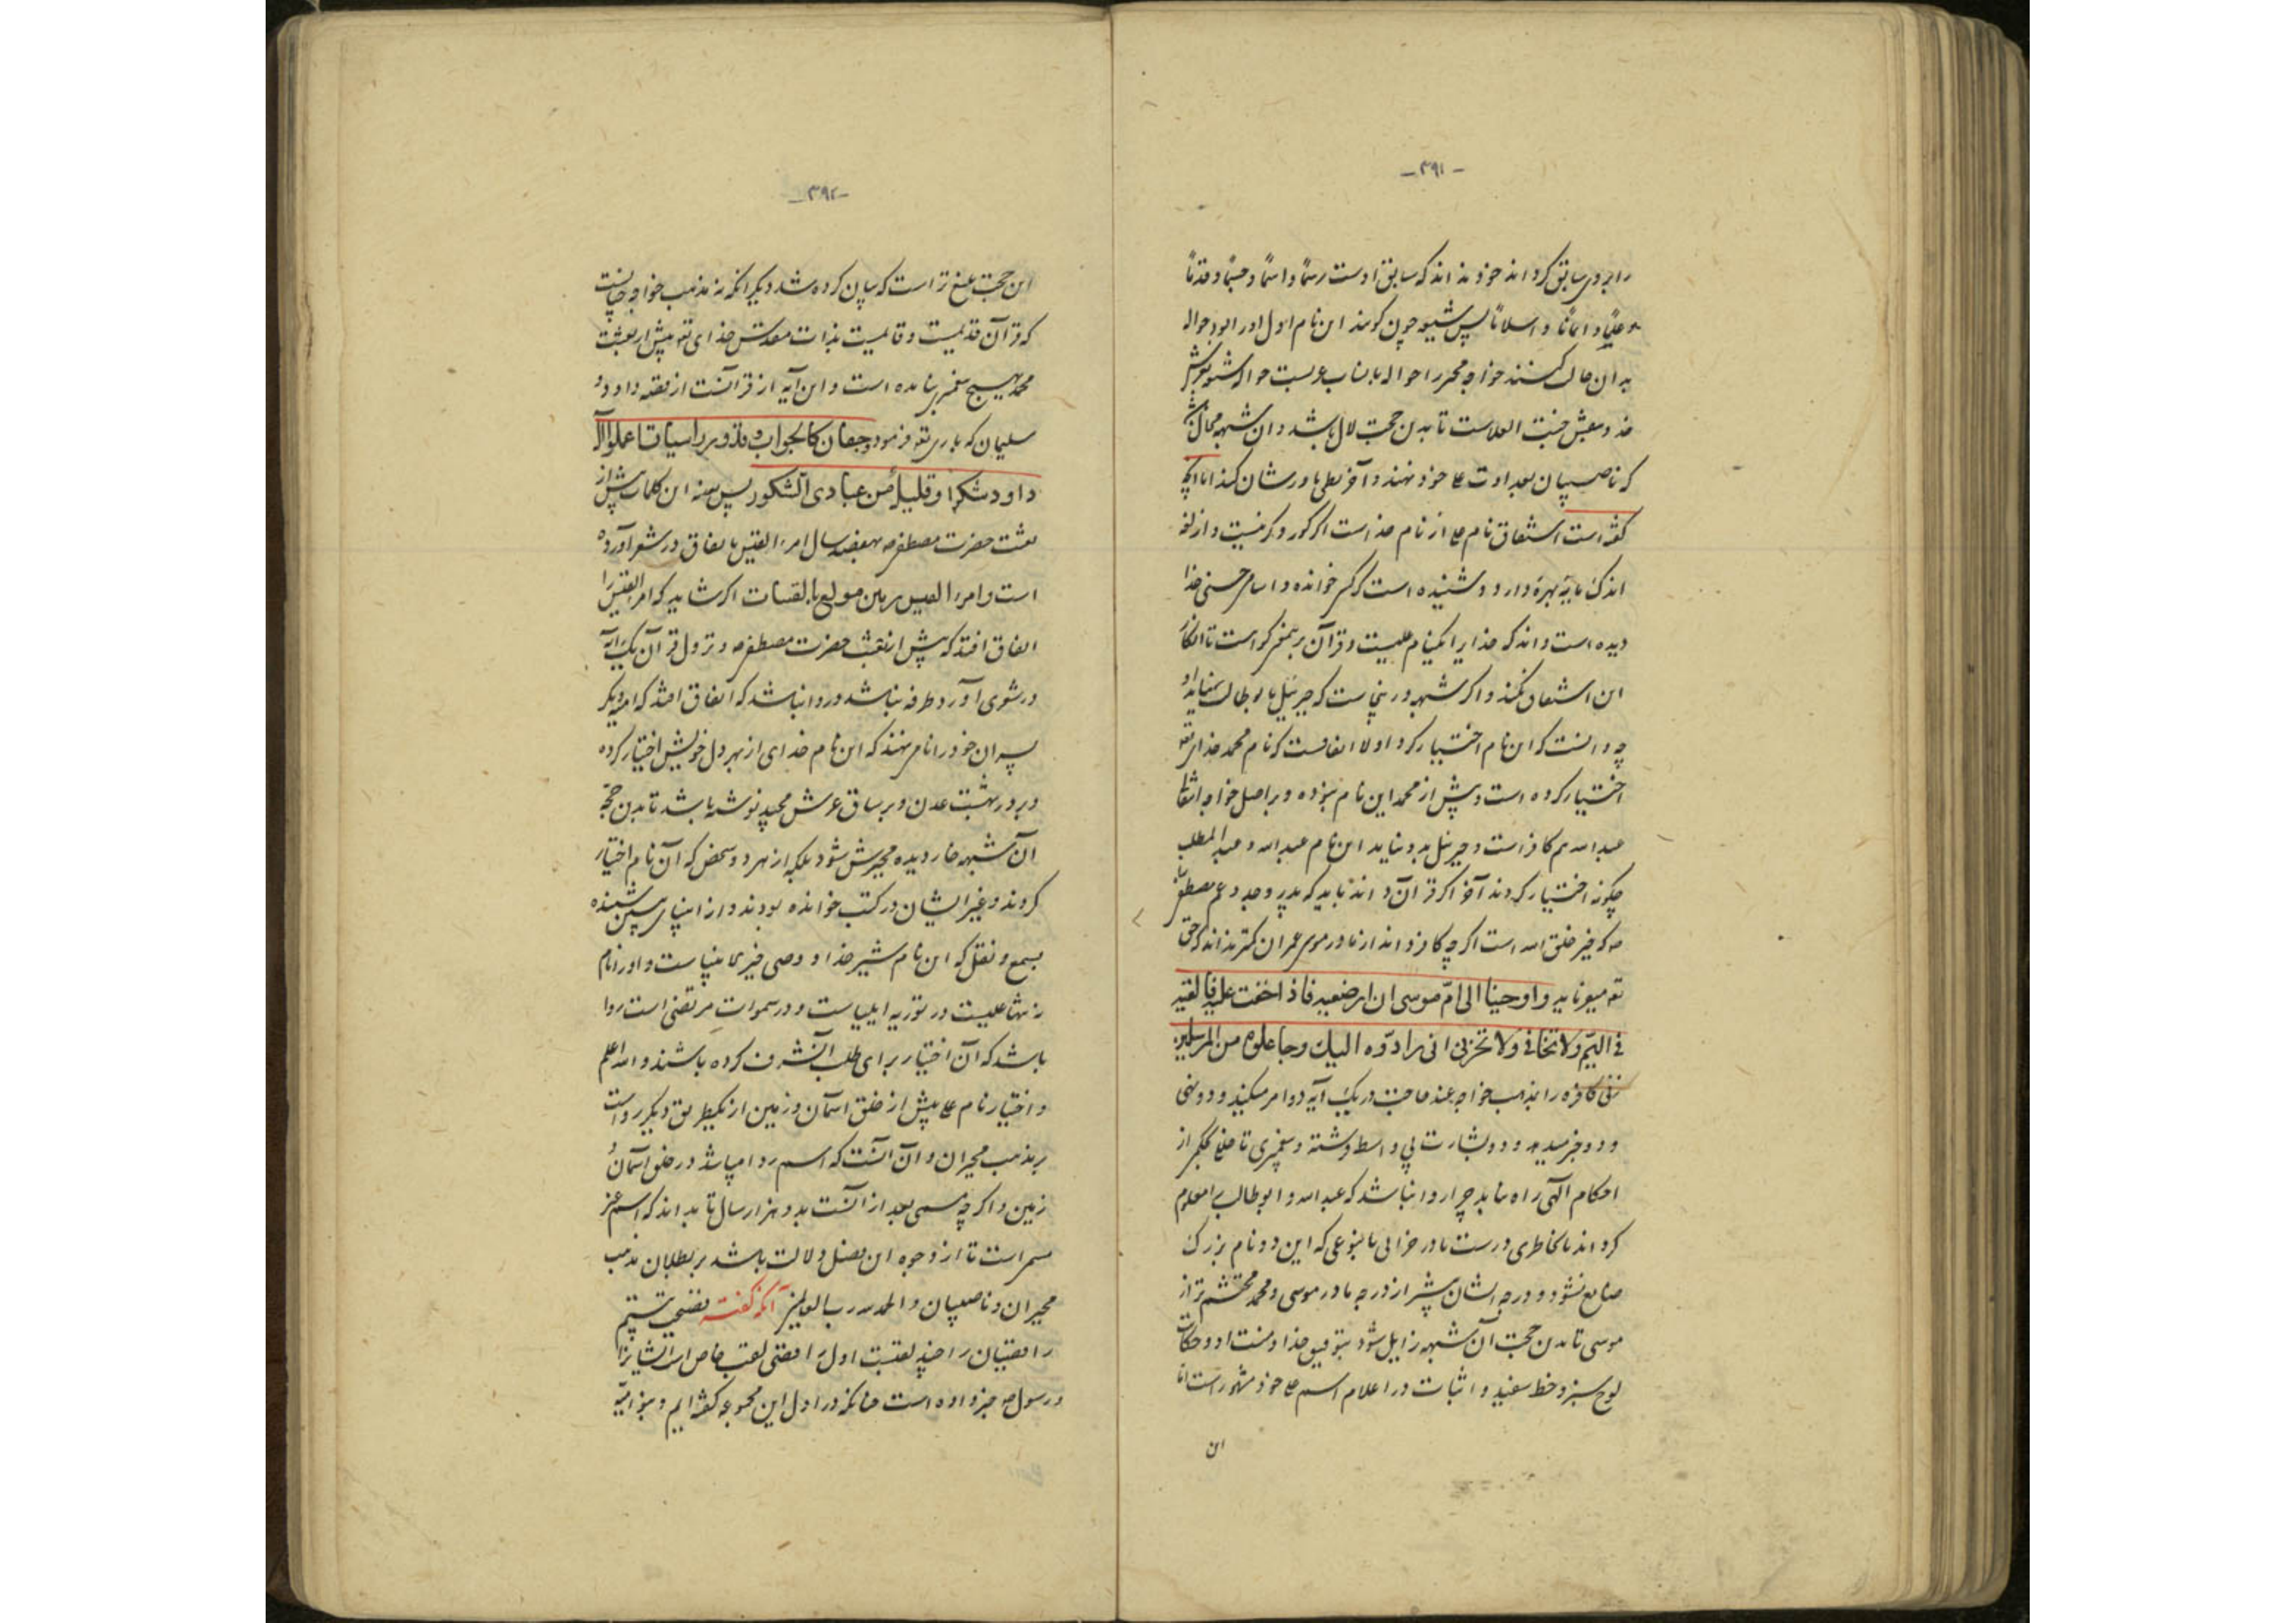 -۳۹۱-
را بروی سابق کرد اند خود نداند که سابق اوست رسمًا و اسمًا و جسمًا و قدمًا
و علمًا و ایمانًا و اسلامًا پس شیعه چون گویند این نام اول او را بود حواله
بدان حال کنند خواجه مجبر را حواله با نساب عربست حواله شیعه بعرش
که ناصبیان بعداوت علی خود نهند و آخر بطی باورشان کند اما آنچه
گفته است اشتقاق نام علی از نام خداست اگر کور و کر نیست و از لغت
اندک مایه بهره دارد و شنیده است که کسی خوانده و اسامی حسنی خدا
دیده است داند که خدایرا یکنام علیست و قرآن برینمعنی گواست تا انکار
این اشتقاق نکند و اگر شبهه درینجاست که جبرئیل با بوطالب نیاید او
چه دانست که این نام اختیار کرد اولا اتفاقست که نام محمد خدای تعه
اختیار کرده است و پیش از محمد این نام نبوده و بر اصل خواجه انتقالی
عبد الله هم کافر است و جبرئیل بدو نیاید این نام عبد الله و عبد المطلب
چگونه اختیار کردند آخر اگر قرآن داند باید که پدر و جد و عم مصطفی
صه که خیر خلق الله است اگر چه کافر داند از مادر موسی عمران کمتر نداند که حق
تعه میفرماید واوحینا الی امّ موسی ان ارضعیه فاذا خفت علیه فالقیه
فی الیمّ ولا تخافی ولا تحزنی انی رادّوه الیک وجاعلوه من المرسلین
زنی کافره را بمذهب خواجه عند حاجت در یک آیه دو امر میکند و دو نهی
و دو خبر میدهد و دو بشارت بی واسطه فرشته و پیغمبری تا ضایع
احکام آلهی راه نیابد چرا روا نباشد که عبد الله و ابوطالب را معلوم
کرد اند بخاطری درست یا در خوابی یا بنوعی که این دو نام بزرگ
ضایع نشود و درجه ایشان بیشتر از درجه مادر موسی و محمد محتشم تر از
موسی تا بدین حجت آن شبهه زایل شود بتوفیق خدا و منت او و حکایت
لوح سبز و خط سفید و اثبات در اعلام اسم علی خود مشهور است اما
این
-۳۹۲-
این حجت بلیغ تر است که بیان کرده شد دیگر آنکه نه مذهب خواجه چنانست
که قرآن قدیمیست و قایمیست بذات مقدس خدای تعه پیش از بعثت
محمد بهیچ پیغمبر نیامده است و این آیه از قرآنست از قصه داود و
سلیمان که باری تعه فرمود وجفان کالجواب و قدور راسیات اعملوا آل
داود شکرا و قلیل من عبادی الشکور پس بعینه این کلمات پیش از
بعثت حضرت مصطفی صه بهفصد سال امرء القیس باتفاق در شعر آورده
است و امرء القیس رهین مولع بالقینات اگر شاید که امرء القیس را
اتفاق افتد که پیش از بعثت حضرت مصطفی صه و نزول قرآن یک آیه
در شعری آورد طرفه نباشد و روا نباشد که اتفاق افتد که امیه دیگر
پسران خود را نام نهند که این نام خدای از بهر دل خویش اختیار کرده
و بر در بهشت عدن و بر ساق عرش مجید نوشته باشد تا بدین حجّه
آن شبهه خار دیده مجبرش شود بلکه از بهر دو شخص که آن نام اختیار
کردند و غیر ایشان در کتب خوانده بودند و از انبیای پیشین شنیده
بسمع و نقل که این نام شیر خدا و وصی خیر انبیاست و او را نام
نه تنها علیست در توریه ایلیاست و در سموات مرتضی است روا
باشد که آن اختیار برای طلب آن شرف کرده باشند و الله اعلم
و اختیار نام علی پیش از خلق آسمان و زمین از یکطریق دیگر رواست
بر مذهب مجبران و آن آنست که اسم روا میباشد در خلق آسمان و
زمین و اگر چه مسمی بعد از آنست بدو هزار سال تا بداند که اسم غیر
مسمی است تا از وجوه این فصل دلالت باشد بر بطلان مذهب
مجبران و ناصبیان والحمد لله رب العالمین آنگه گفته فضیحت بیستم
رافضیان را چند لقبست اول رافضی لقب خاص است ایشانرا
و رسول صه خبر داده است چنانکه در اول این مجموعه گفته ایم